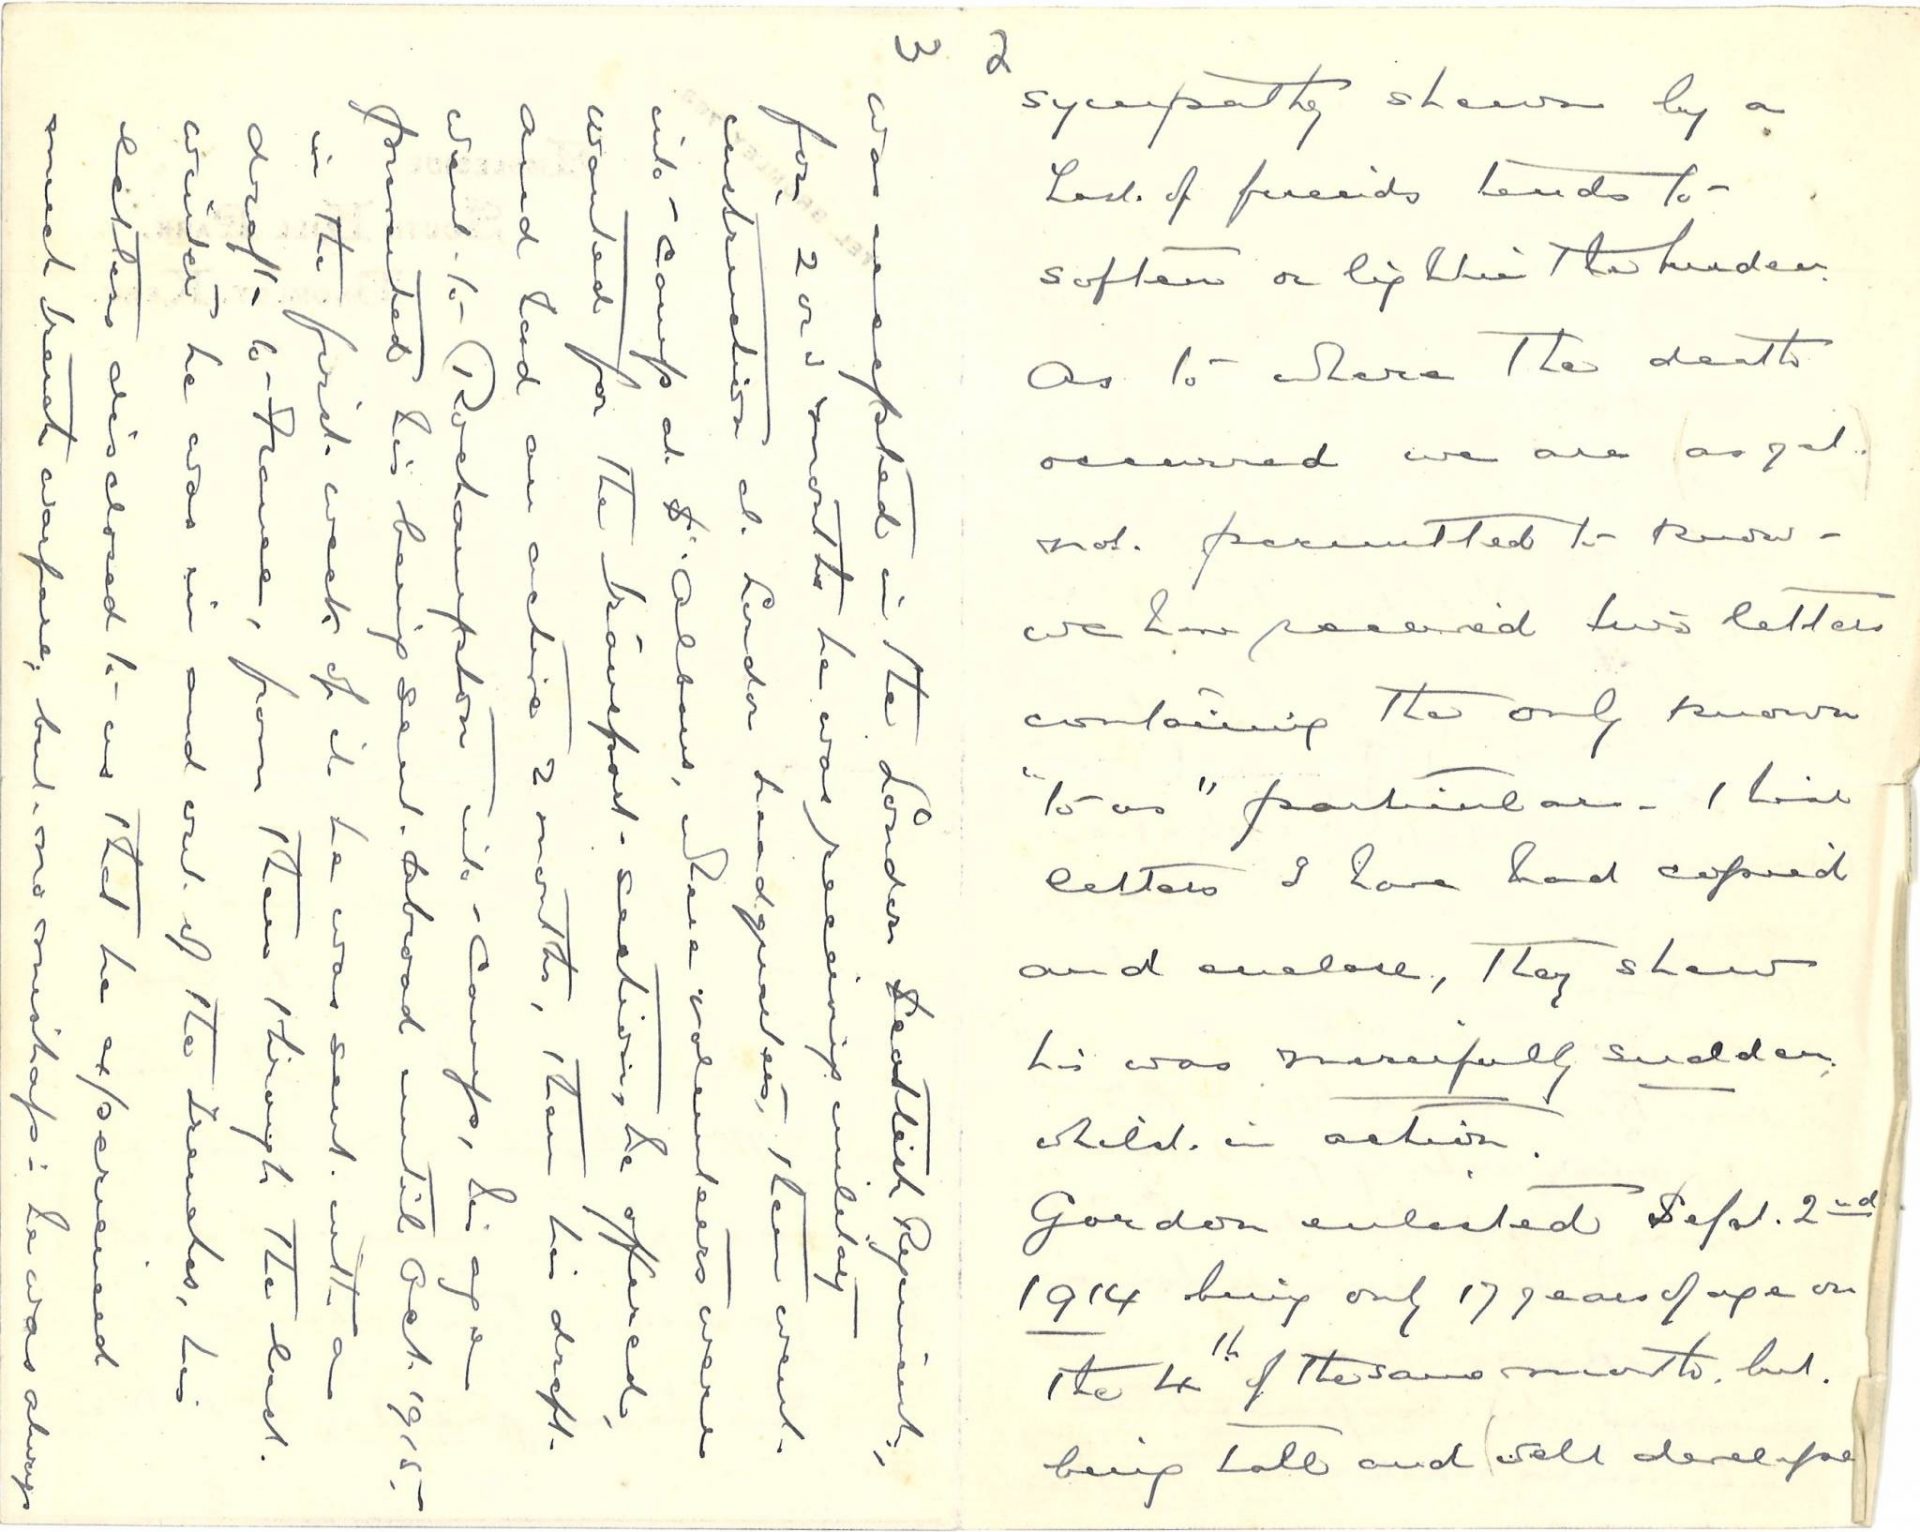 2
sympathy shewn by a
host of friends tends to
soften or lighten the burden.
As to where the death
occurred we are (as yet)
not permitted to know -
we have received two letters
containing the only known
"to us" particulars - these
letters I have had copied
and enclose, they shew
his was mercifully sudden,
whilst in action.
Gordon enlisted Sept. 2nd
1914 being only 17 years of age on
the 4th of the same month. but.
being tall and well develope
3
was accepted in the London Scottish Regiment,
for 2 or 3 months he was receiving military
instruction at London headquarters, then went
into - camp at St. Albans, where volunteers were
wanted for the transport - section, he offered,
and had an active 2 months, then his draft
went to Rochampton into - camp, his age
prevented his being sent abroad until Oct. 1915 -
in the first week of it he was sent with a
draft to - France, from then through the last
winter he was in and out of the trenches, his
letters disclosed to - us that he experienced
much trench warfare, but - no mishap - he was always